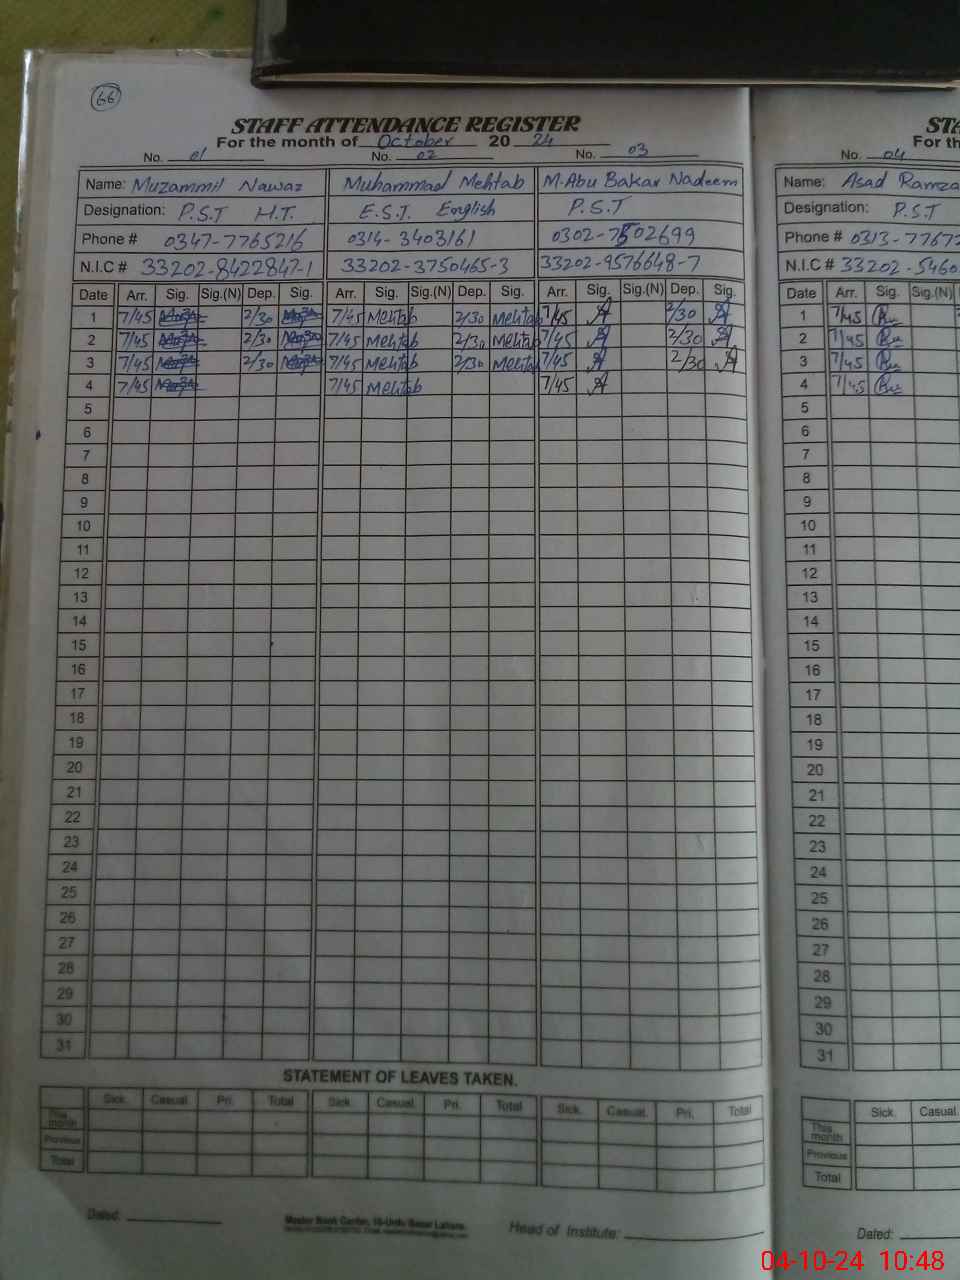 66
STAFF ATTENDANCE REGISTER
For the month of October 20 24
No. 01 No. 02 No. 03
Name: Muzammil Nawaz Muhammad Mehtab M. Abu Bakar Nadeem
Designation: P.S.T H.T. E.S.T English P.S.T
Phone # 0347-7765216 0314-3403161 0302-7502699
N.I.C # 33202-8422847-1 33202-3750465-3 33202-9576648-7
Date Arr. Sig. Sig.(N) Dep. Sig. Arr. Sig. Sig.(N) Dep. Sig. Arr. Sig. Sig.(N) Dep. Sig.
1 7/45 2/30 7/45 Mehtab 2/30 Mehtab 7/45 2/30
2 7/45 2/30 7/45 Mehtab 2/30 Mehtab 7/45 2/30
3 7/45 2/30 7/45 Mehtab 2/30 Mehtab 7/45 2/30
4 7/45 7/45 Mehtab 7/45
5
6
7
8
9
10
11
12
13
14
15
16
17
18
19
20
21
22
23
24
25
26
27
28
29
30
31
STATEMENT OF LEAVES TAKEN.
Sick. Casual. Pri. Total Sick. Casual. Pri. Total Sick. Casual. Pri. Total
This month
Previous
Total
Dated: Master Book Center, 10-Urdu Bazar Lahore. Head of Institute:
STA
For th
No. 04
Name: Asad Ramza
Designation: P.S.T
Phone # 0313-77672
N.I.C # 33202-5460
Date Arr. Sig. Sig.(N)
1 7/45
2 7/45
3 7/45
4 7/45
5
6
7
8
9
10
11
12
13
14
15
16
17
18
19
20
21
22
23
24
25
26
27
28
29
30
31
Sick. Casual.
This month
Previous
Total
Dated:
04-10-24 10:48